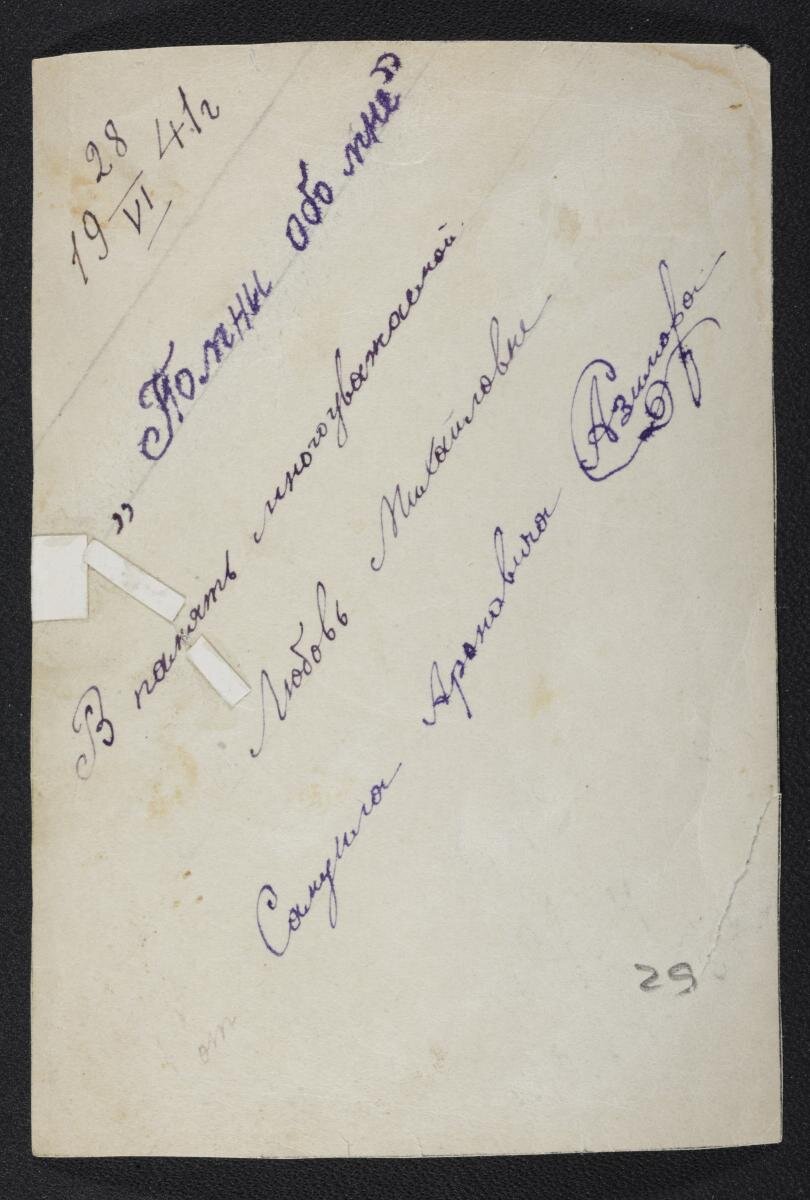 19 28/VI 41г
„Помни обо мне"
В память многоуважаемой
Любовь Михайловне
Самуила Ароновича Азимова
от
29